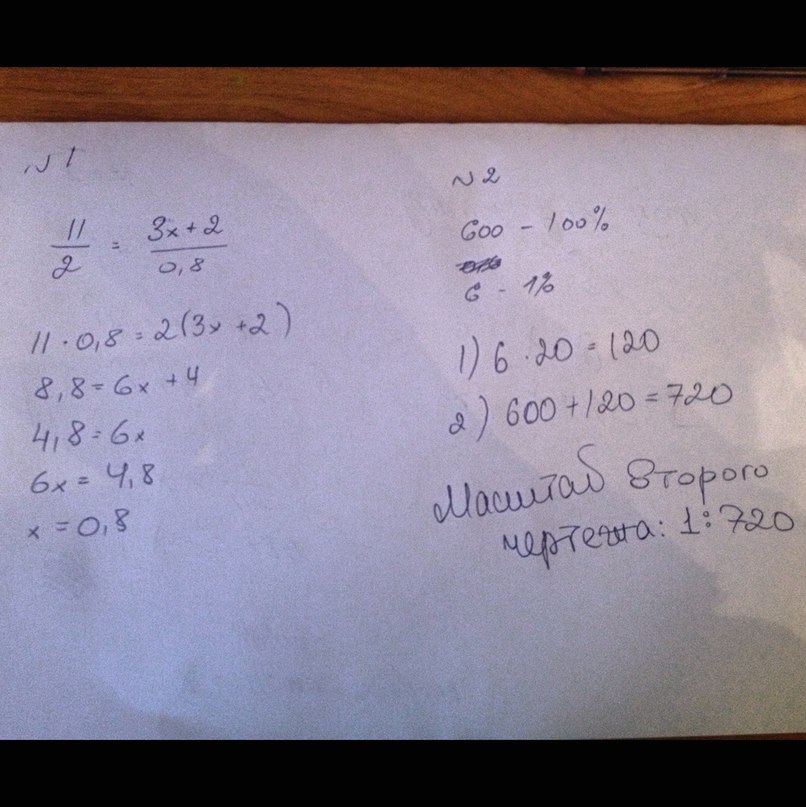 N 1
11/2 = 3x+2/0,8
11 · 0,8 = 2(3x +2)
8,8 = 6x + 4
4,8 = 6x
6x = 4,8
x = 0,8
N 2
600 - 100%
6 - 1%
1) 6 · 20 = 120
2) 600 + 120 = 720
Масштаб второго
чертежа: 1:720